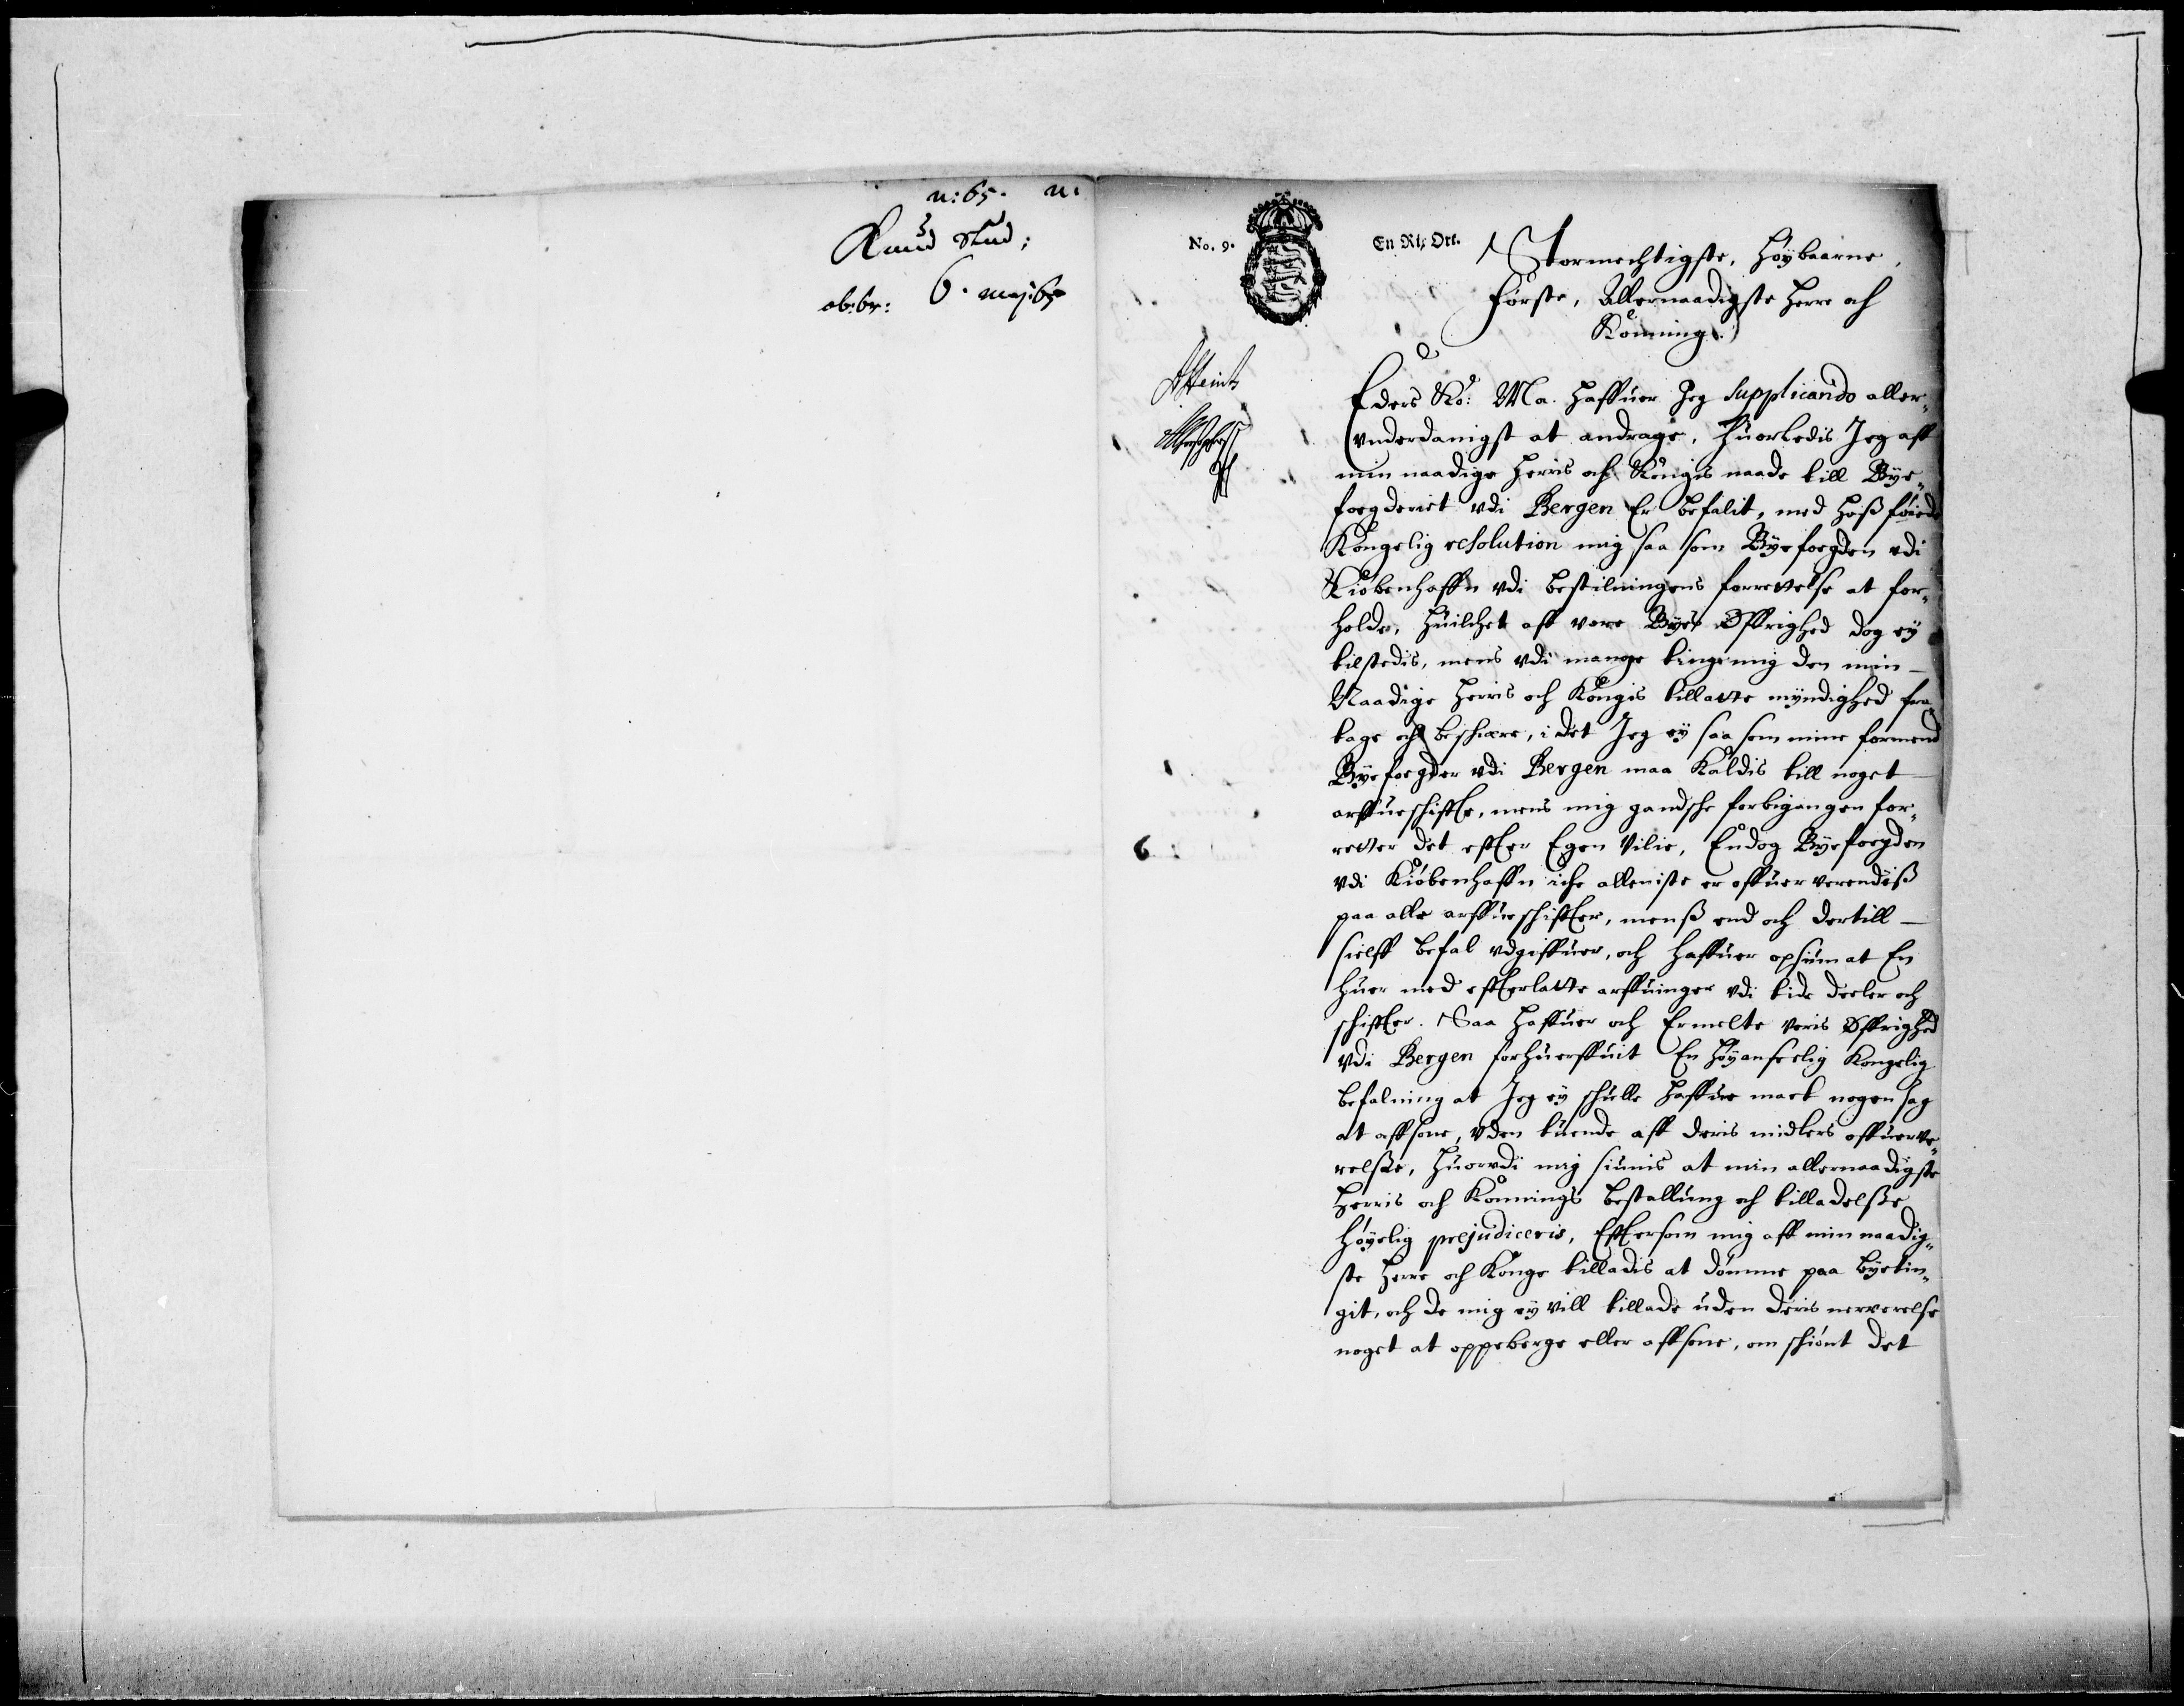 n: 65. n:
Knud Stud:
ob: br: 6. maj: 65
No. 9.
En Rix Ort.
Stormechtigste, Høybaarne,
Første, Allernaadigste Herre och
Konning.
Eders Ko: Ma. Haffuer Jeg Supplicando aller„
vnderdanigst at andrage, huorledis Jeg aff
min naadige Herris och Kongis naade till Bye„
foegderiet vdi Bergen Er befalit, med hoß føiede
Kongelig resolution mig saa som Byefoegden vdi
Kiøbenhaffn vdi bestilningens forrettelse at for„
holde, huilchet aff vore Byes Øffrighed dog ey
tilstedis, mens vdi mange ting mig den min
Naadige Herris och Kongis tillatte myndighed fra„
tage och beschære, i det Jeg ey saa som mine formend
Byefoegder vdi Bergen maa Kaldis till noget
arffueschiffte, mens mig gandsche forbigangen for„
retter det effter Egen Vilie, Endog Byefoegden
vdi Kiøbenhaffn iche alleniste er offuerverendiß
paa alle arffueschiffter, menß end och dertill
sielff befal vdgiffuer, och haffuer opsiun at En
huer med effterlatte arffuinger vdi tide deeler och
schiffter. Saa haffuer och Ermelte voris Øffrighed
vdi Bergen forhuerffuit En høyanseelig Kongelig
befalning at Jeg ey schulle haffue mact nogen sag
at affsone, vden tuende aff deris midlers offuerve„
relße, huorvdi mig siunis at min allernaadigste
Herris och Konnings bestallung och tilladelße
høyelig prejudiceris, Efftersom mig aff min naadig„
ste Herre och Konge tilladis at dømme paa byetin„
git, och de mig ey vill tillade uden deris nerverelse
noget at oppeberge eller affsone, om schiønt det